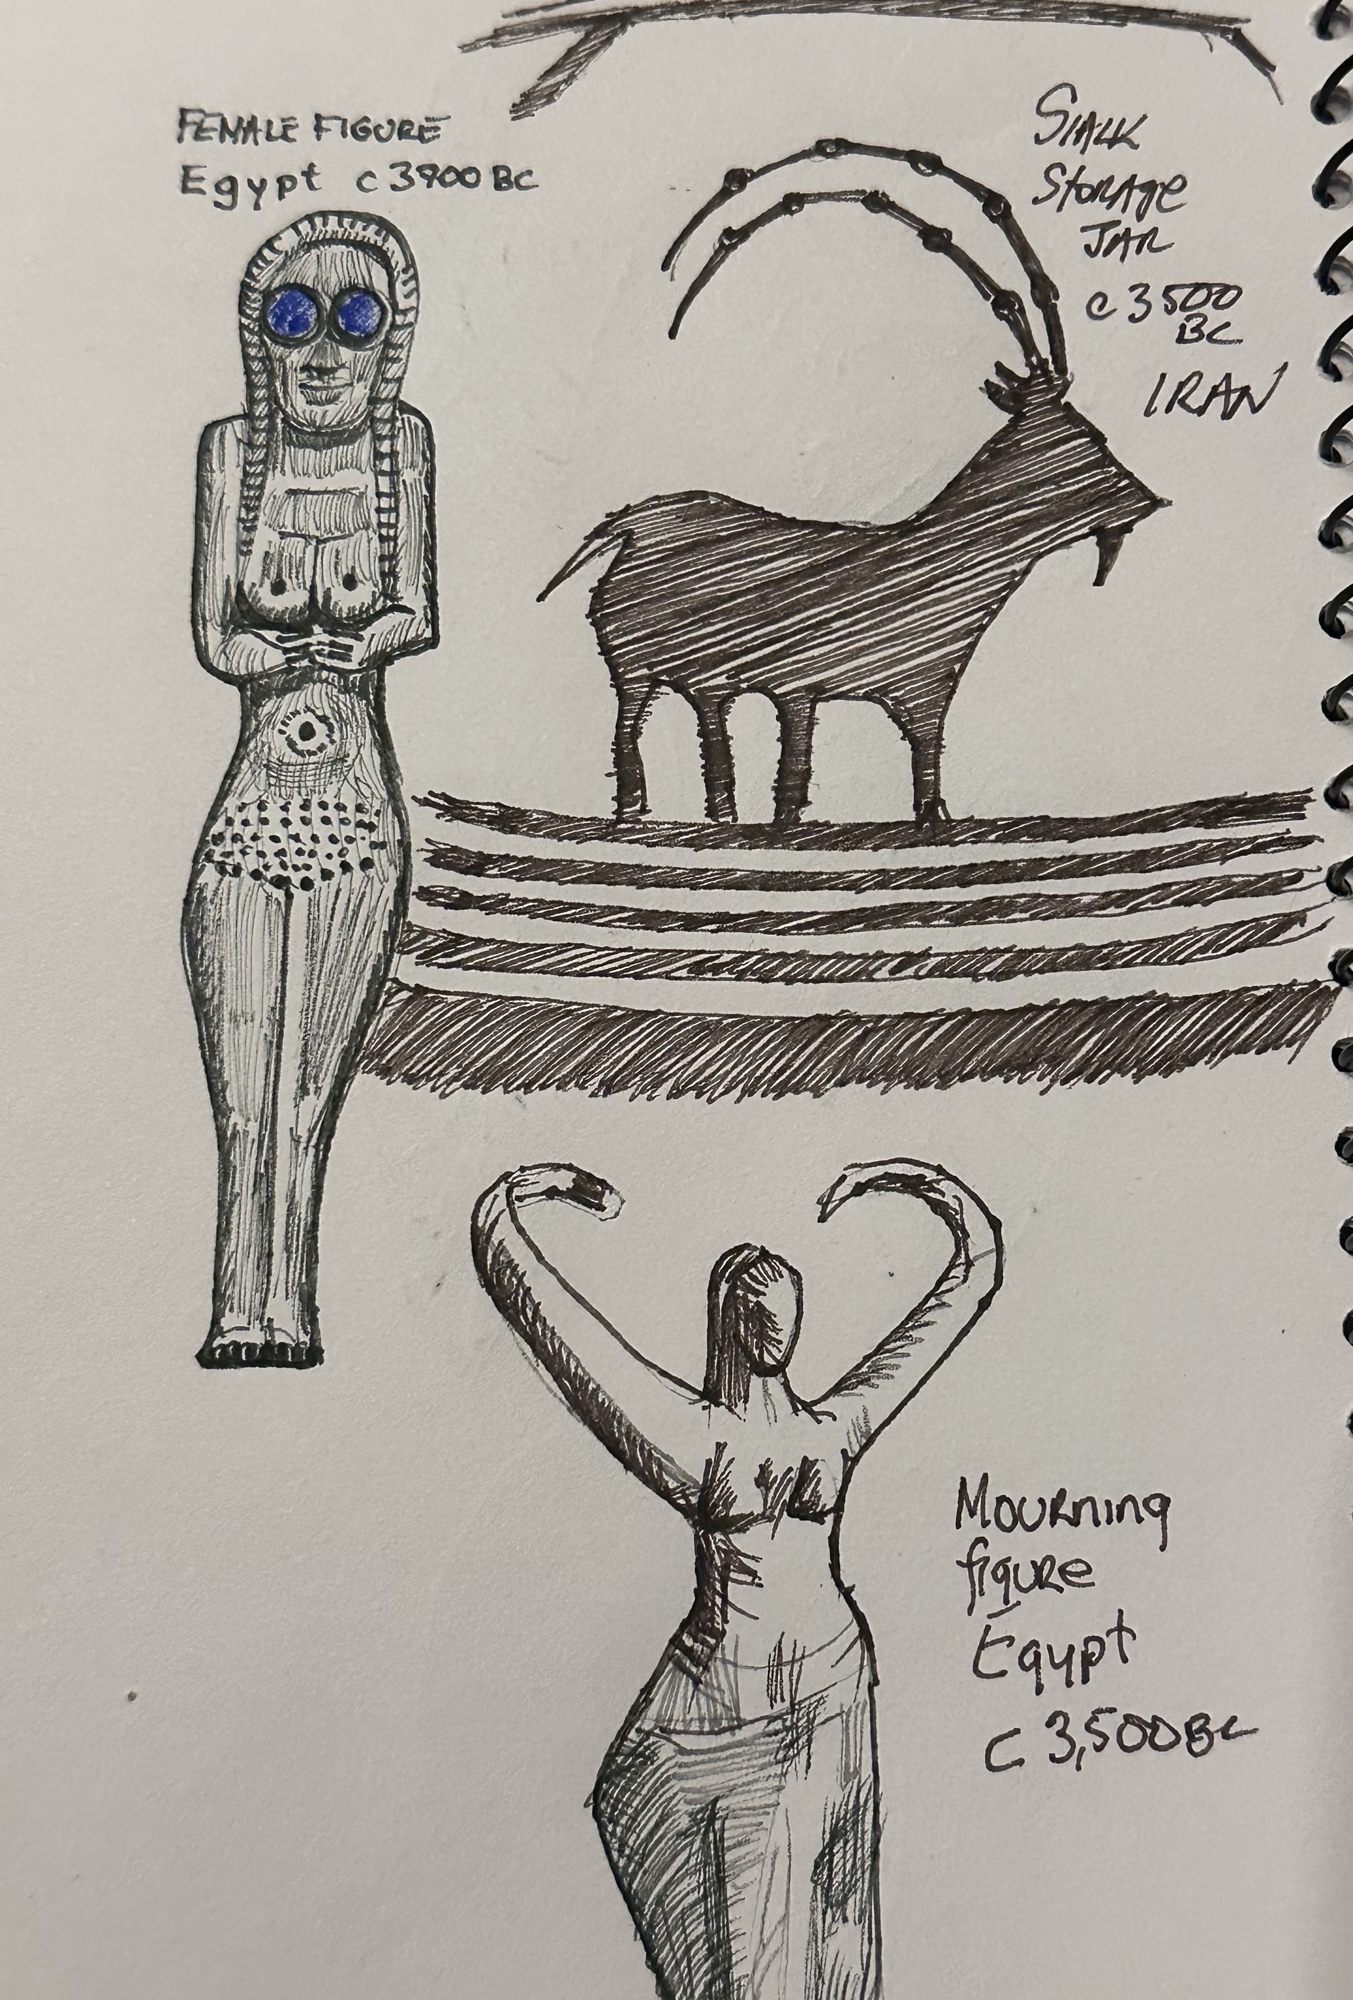 FEMALE FIGURE
Egypt c 3900 BC
SIALK
STORAGE
JAR
c 3500
BC
IRAN
Mourning
figure
Egypt
C 3,500BC